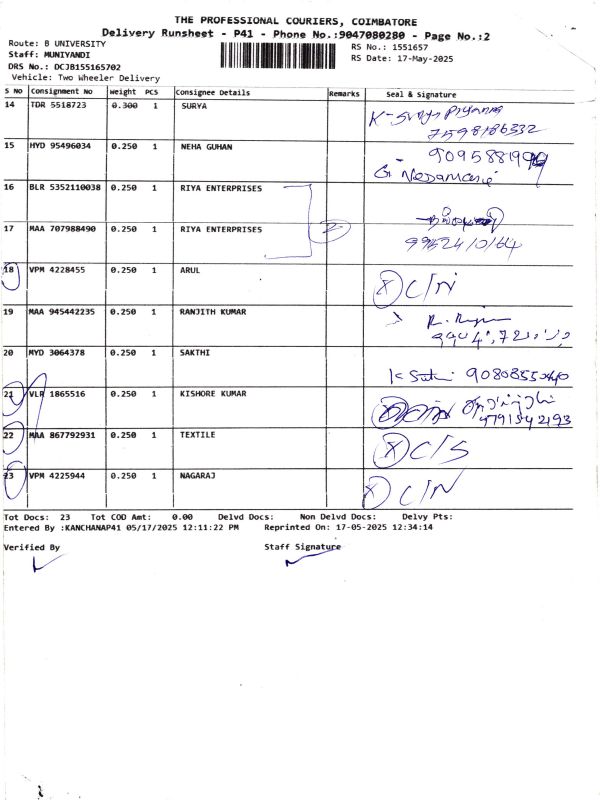 THE PROFESSIONAL COURIERS, COIMBATORE
Delivery Runsheet - P41 - Phone No.:9047080280 - Page No.:2
Route: B UNIVERSITY
Staff: MUNIYANDI
DRS No.: DCJB155165702
Vehicle: Two Wheeler Delivery
RS No.: 1551657
RS Date: 17-May-2025
S NO Consignment No Weight PCS Consignee Details Remarks Seal & Signature
14 TDR 5518723 0.300 1 SURYA K-Surya Priyanka
7598186332
15 HYD 95496034 0.250 1 NEHA GUHAN
G.
16 BLR 5352110038 0.250 1 RIYA ENTERPRISES
17 MAA 707988490 0.250 1 RIYA ENTERPRISES 2
9952410164
18 VPM 4228455 0.250 1 ARUL X C/N
19 MAA 945442235 0.250 1 RANJITH KUMAR
20 MYD 3064378 0.250 1 SAKTHI
21 VLR 1865516 0.250 1 KISHORE KUMAR
9791542193
22 MAA 867792931 0.250 1 TEXTILE X C/S
23 VPM 4225944 0.250 1 NAGARAJ X C/N
Tot Docs: 23 Tot COD Amt: 0.00 Delvd Docs: Non Delvd Docs: Delvy Pts:
Entered By :KANCHANAP41 05/17/2025 12:11:22 PM Reprinted On: 17-05-2025 12:34:14
Verified By Staff Signature